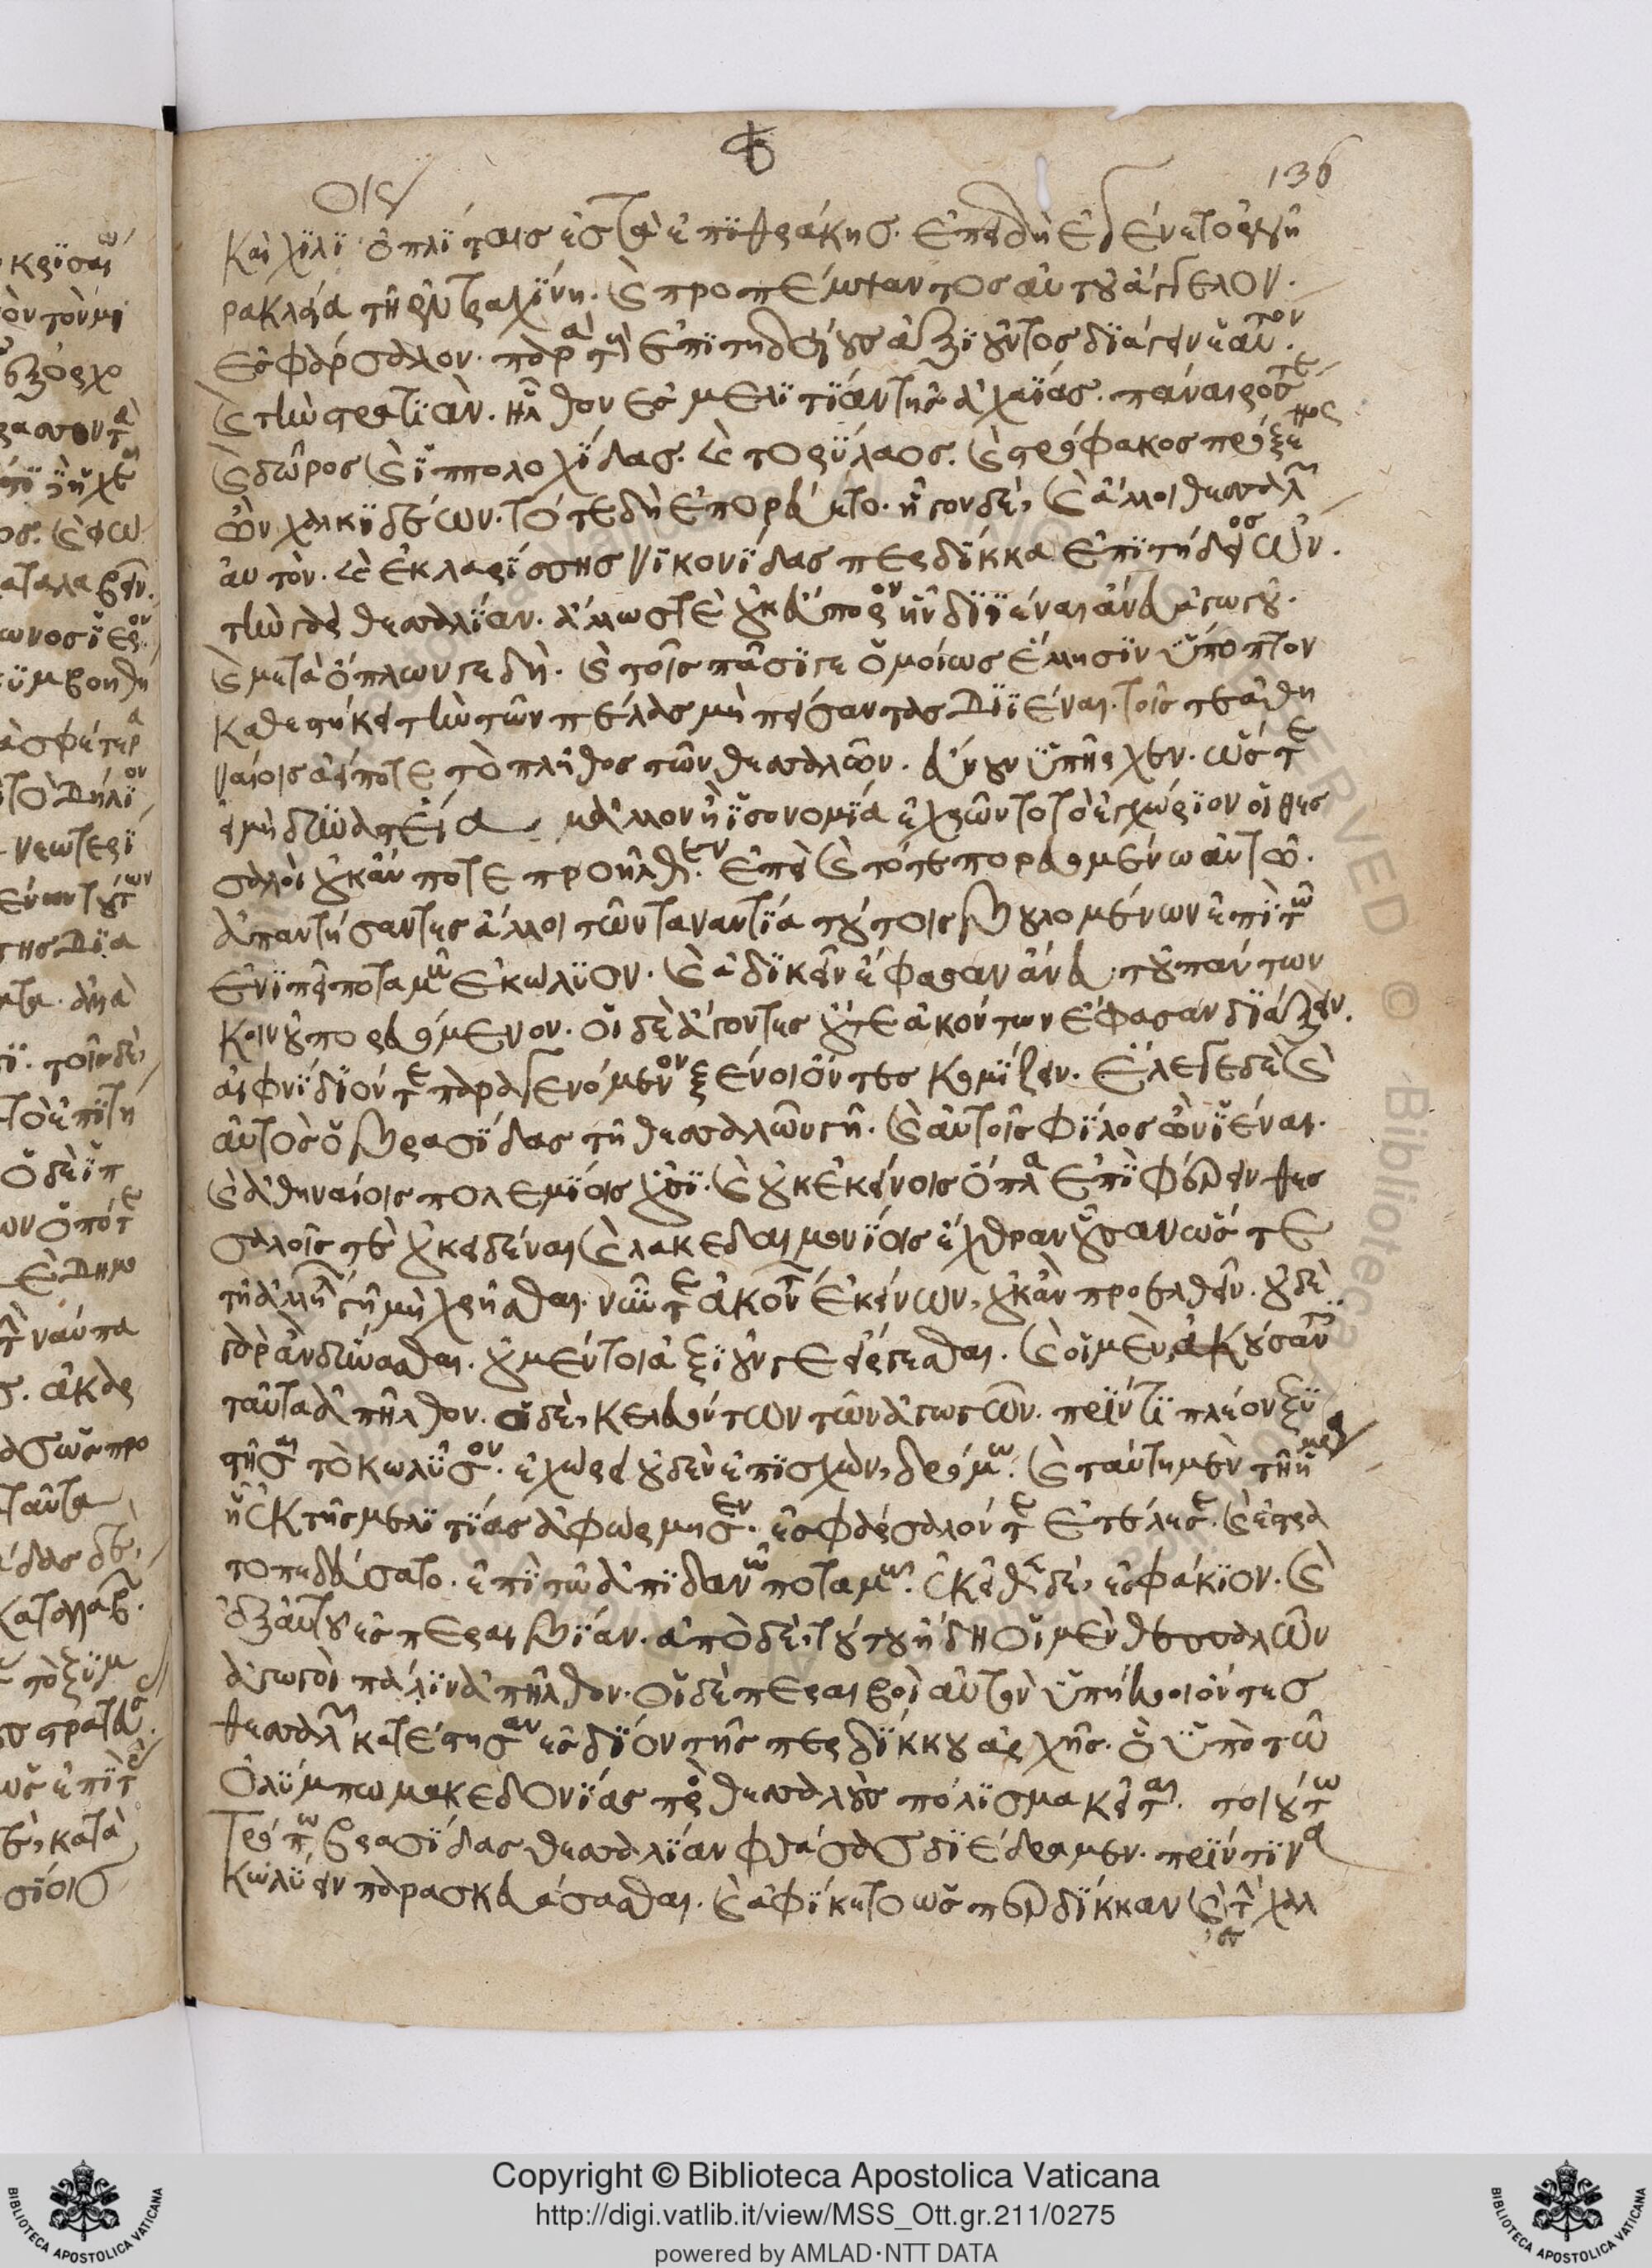 Φ
136
οις
Καὶ χιλί ὁπλίταις ἐς τὰ ἐπὶ θράκης. ἐπειδὴ ἐγένετο ἐν ἡ
ρακλεία τῇ ἐν τραχίνη. καὶ προπέμψαντος αὐτοῦ ἄγγελον.
ἐς φάρσαλον. παρὰ τοὺς ἐπιτηδείους ἀξιοῦντος διάγειν ἑαυτον.
καὶ τὴν στρατιὰν. ἦλθον ἐς μελιτίαν τῆς ἀχαΐας. πάναιρόστε
καὶ δῶρος καὶ ἱππολοχίδας. καὶ τορύλαος. καὶ στρόφακος πρόξενος
ὢν χαλκιδέων. τότε δὴ ἐπορεύετο. ἦγον δὲ, καὶ ἄλλοι θεσσαλῶν
αὐτὸν. καὶ ἐκ λαρίσσης νικονίδας περδίκκα ἐπιτήδειος ὤν.
τὴν γὰρ θεσσαλίαν. ἄλλωστε οὐκ εὔπορον ἦν διϊέναι ἄνευ ἀγωγοῦ.
καὶ μετὰ ὅπλων γε δὴ. καὶ τοῖς πᾶσί γε ὁμοίως ἕλλησιν ὕποπτον
καθεστήκει τὴν τῶν πέλας μὴ πείσαντας διϊέναι. τοῖς τε ἀθη
ναίοις αἰείποτε τὸ πλῆθος τῶν θεσσαλῶν. εὔνουν ὑπῆρχεν. ὥστε
εἰ μὴ δυναστεία μᾶλλον ἢ ἰσονομία ἐχρῶντο τὸ ἐγχώριον οἱ θεσ
σαλοὶ οὐκ ἄν ποτε προῆλθεν. ἐπεὶ καὶ τότε πορευομένω αὐτῶ.
ἀπαντήσαντες ἄλλοι τῶν τἀναντία τούτοις βουλομένων ἐπὶ τῶ
ἐνιπεῖ ποταμῶ ἐκώλυον. καὶ ἀδικεῖν ἔφασαν ἄνευ τοῦ πάντων
κοινοῦ πορευόμενον. οἱ δὲ ἄγοντες οὔτε ἀκόντων ἔφασαν διάξειν.
αἰφνίδιόν τε παραγενόμενον ξένοι ὄντες κομίζειν. ἔλεγε δὲ καὶ
αὐτὸς ὁ βρασίδας τῇ θεσσαλῶν γῇ. καὶ αὐτοῖς φίλος ὢν ἰέναι.
καὶ ἀθηναίοις πολεμίοις οὖσι. καὶ οὐκ ἐκείνοις ὅπλα ἐπιφέρειν θεσ
σαλοῖς τὲ οὐκ εἰδέναι καὶ λακεδαιμονίοις ἔχθραν οὖσαν ὥστε
τῇ ἀλλήλων γῇ μὴ χρῆσθαι. νῦν τε ἀκόντων ἐκείνων, οὐκ ἂν προελθεῖν. οὐδὲ
γὰρ ἂν δύνασθαι. οὐ μέντοι ἀξιοῦν γε εἴργεσθαι. καὶ οἱ μὲν, ἀκούσαντες
ταῦτα ἀπῆλθον. ὁ δὲ, κελευόντων τῶν ἀγωγῶν. πρίν τι πλέον ξυ
στῆσαι τὸ κωλῦσον. ἐχώρει οὐδὲν ἐπισχὼν, δρόμω. καὶ ταύτη μὲν τῇ ἡμέρα
ἧ ἐκ τῆς μελιτίας ἀφώρμησεν. ἐς φάρσαλόν τε ἐτέλεσε. καὶ ἐστρα
τοπεδεύσατο. ἐπὶ τῶ ἀπιδανῶ ποταμῶ. ἐκεῖθεν δὲ, ἐς φάκιον. καὶ
ἐξ αὐτοῦ ἐς περαιβίαν. ἀπὸ δὲ, τούτου ἤδη οἱ μὲν θεσσαλῶν
ἀγωγοὶ πάλιν ἀπῆλθον. οἱ δὲ περαιβοὶ αὐτὸν ὑπήκοοι ὄντες
θεσσαλῶν κατέστησαν ἐς δῖον τῆς περδίκκου ἀρχῆς. ὃ ὑπὸ τῶ
ὀλύμπω μακεδονίας πρὸς θεσσαλοὺς πόλισμα κεῖται. τοιούτω
τρόπω βρασίδας θεσσαλίαν φθάσας διέδραμεν. πρίν τινα
κωλύειν παρασκευάσασθαι. καὶ ἀφίκετο ὡς περδίκκαν καὶ ἐς τὴν χαλ
Copyright © Biblioteca Apostolica Vaticana
http://digi.vatlib.it/view/MSS_Ott.gr.211/0275
powered by AMLAD·NTT DATA